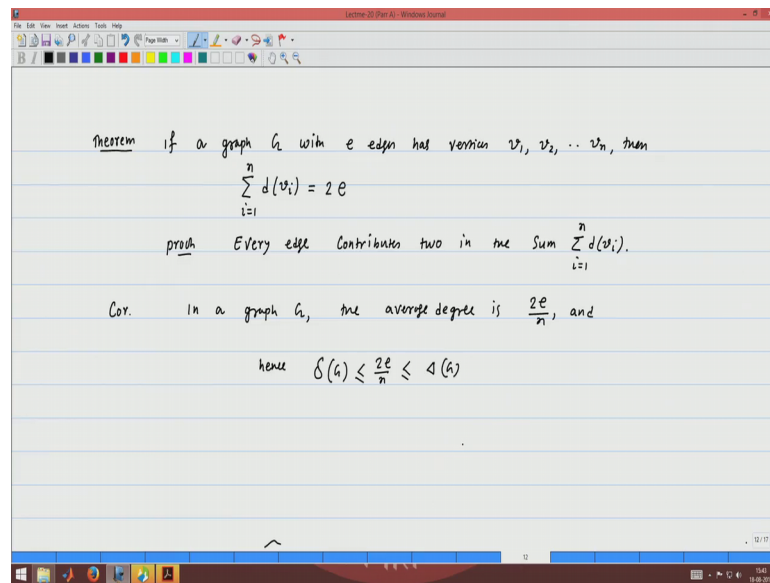 Lecture-20 (Part A) - Windows Journal
File Edit View Insert Actions Tools Help
Page Width
B I
Theorem If a graph G with e edges has vertices v₁, v₂, .. vₙ, then
n
∑ d(vᵢ) = 2e
i=1
proof Every edge Contributes two in the Sum ∑ d(vᵢ).
n
i=1
Cor. In a graph G, the average degree is 2e/n, and
hence δ(G) ≤ 2e/n ≤ Δ(G)
12/17
12
15:43